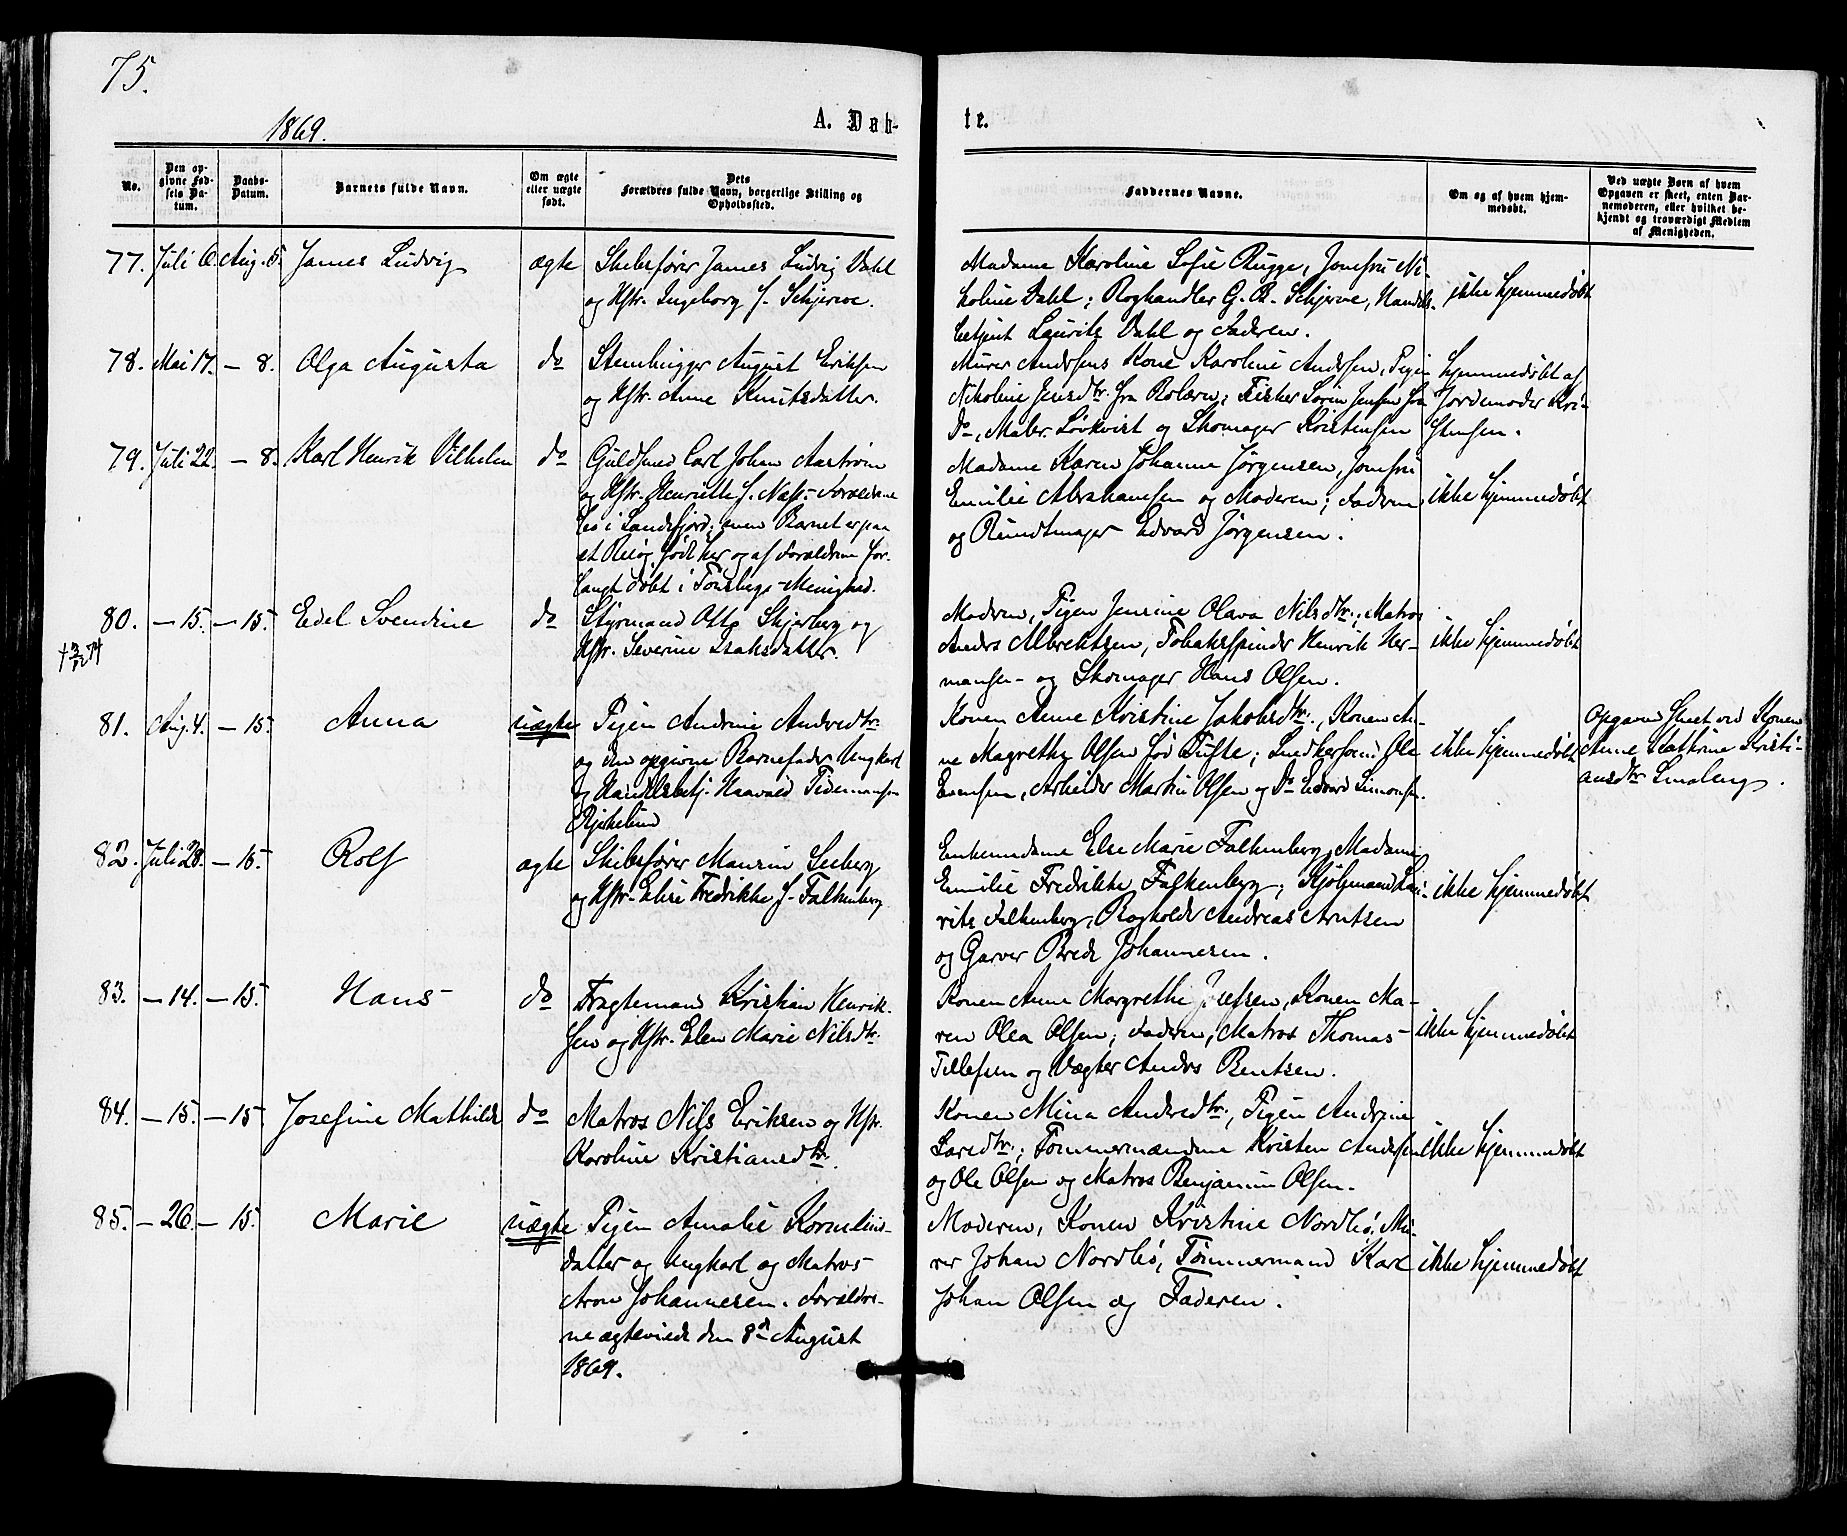 75.
1869.
A. Døb-
te.
No.
Den op-
givne Fød-
sels Da-
tum.
Daabs-
Datum.
Barnets fulde Navn.
Om ægte
eller uægte
født.
Dets
Forældres fulde Navn, borgerlige Stilling og
Opholdssted.
Faddernes Navne.
Om og af hvem hjem-
medøbt.
Ved uægte Børn af hvem
Opgaven er skeet, enten Bar-
nemoderen, eller hvilket be-
kjendt og troværdigt Medlem
af Menigheden.
77. Juli 6. Aug. 5. James Ludvig ægte
Skibsfører James Ludvig Dahl
og Hstr. Ingeborg f. Schjerve.
Madame Karoline Sofie Bugge, Jomfru Ni-
koline Dahl; Boghandler G. B. Schjerve, Handels-
betjent Laurits Dahl og Faderen.
ikke hjemmedøbt
78. Mai 17. — 8. Olga Augusta do
Stenhugger August Eriksen
og Hstr. Anne Knutsdatter.
Murer Andersens Kone Karoline Andersen, Pigen
Nikoline Jensdtr. fra Bolærn; Fisker Sørin Jensen fra
Do, Maler Lövkvist og Skomager Kristensen
hjemmedøbt af
Jordemoder Kri-
stensen.
79. Juli 22. — 8. Karl Henrik Vilhelm do
Guldsmed Carl Johan Aastrøm
og Hstr. Henriette f. Næss. Forældrene
bo i Sandefjord; men Barnet er paa
et Besøg født her og af Forældrene for-
langt døbt i Tønsbergs Menighed.
Madame Karen Johanne Jørgensen, Jomfru
Emilie Abrahamsen og Moderen; Faderen
og Buntmager Edvard Jørgensen.
ikke hjemmedøbt
80. — 15. — 15. Edel Svendine do
Styrmand Otto Skjerberg og
Hstr. Severine Isaksdatter.
Moderen, Pigen Jensine Olava Nilsdtr.; Matros
Anders Albrektsen, Tobaksspinder Henrik Her-
mansen og Skomager Hans Olsen.
ikke hjemmedøbt
81. Aug. 4. — 15. Anna uægte
Pigen Andrine Andredtr.
og den opgivne Barnefader Ungkarl
og Handelsbetj. Haavald Tidemansen
Konen Anne Kristine Jakobsdtr., Konen An-
ne Magrethe Olsen fød Tufte; Snedkersvend Ole
Evensen, Arbeider Martin Olsen og Do Edvard Simonsen.
ikke hjemmedøbt
Opgaven skeet ved Konen
Anne Kathrine Kristi-
ansdtr. Smaleng.
82. Juli 28. — 15. Rolf ægte
Skibsfører Mauriu Seeberg
og Hstr. Elise Fredrikke f. Falkenberg
Enkemadame Else Marie Falkenberg, Madame
Emilie Fredrikke Falkenberg; Kjøbmand Lau-
rits Falkenberg, Bogholder Andreas Arntsen
og Garver Brede Johannesen.
ikke hjemmedøbt
83. — 14. — 15. Hans do
Fragtemand Kristian Henrik-
sen og Hstr. Elen Marie Nilsdtr.
Konen Anne Margrethe Josefsen, Konen Ma-
ren Olea Olsen; Faderen, Matros Thomas
Tellefsen og Vægter Anders Bentsen.
ikke hjemmedøbt
84. — 15. — 15. Josefine Mathilde do
Matros Nils Eriksen og Hstr.
Karoline Kristiansdtr.
Konen Mina Andredtr., Pigen Andrine
Larsdtr.; Tømmermændene Kristen Andersen
og Ole Olsen og Matros Benjamin Olsen.
ikke hjemmedøbt
85. — 26. — 15. Marie uægte
Pigen Amalie Kornelius-
datter og Ungkarl og Matros
Aron Johannesen. Forældre-
ne ægteviede den 8de August
1869.
Moderen, Konen Kristine Nordbö, Mu-
rer Johan Nordbö, Tømmermand Karl
Johan Olsen og Faderen.
ikke hjemmedøbt